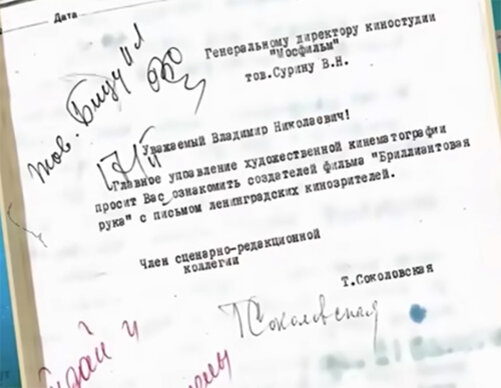 Дата
Генеральному директору киностудии
"Мосфильм"
тов.Сурину В.Н.
тов.
Уважаемый Владимир Николаевич!
Главное управление художественной кинематографии
просит Вас ознакомить создателей фильма "Бриллиантовая
рука" с письмом ленинградских кинозрителей.
Член сценарно-редакционной
коллегии
Т.Соколовская
ТСоколовская